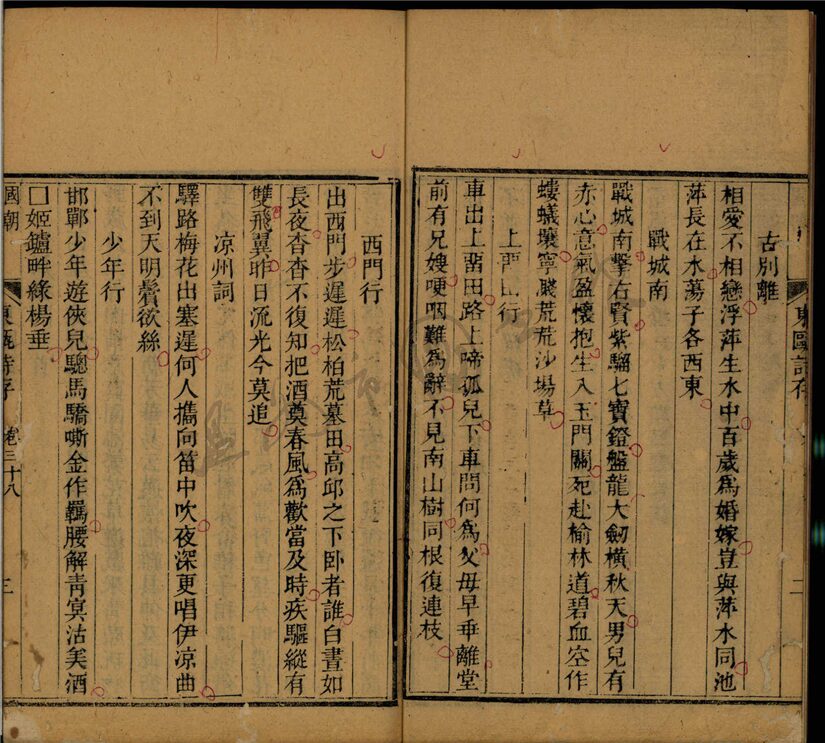 古別離
相愛不相戀浮萍生水中百歲爲婚嫁豈與萍水同池
萍長在水蕩子各西東
戰城南
戰城南擊右賢紫騮七寶鐙盤龍大劒橫秋天男兒有
赤心意氣盈懷抱生入玉門關死赴榆林道碧血空作
螻蟻壤寧賤荒荒沙場草
上留田行
車出上留田路上啼孤兒下車問何爲父毋早垂離堂
前有兄嫂哽咽難爲辭不見南山樹同根復連枝
西門行
出西門步遲遲松柏荒墓田高邱之下卧者誰白晝如
長夜杳杳不復知把酒奠春風爲歡當及時疾驅縱有
雙飛翼昨日流光今莫追
凉州詞
驛路梅花出塞遲何人攜向笛中吹夜深更唱伊凉曲
不到天明鬢欲絲
少年行
邯鄲少年遊俠兒驄馬驕嘶金作羈腰解靑㝠沽美酒
□姬鑪畔綠楊垂
國朝
東甌詩存
卷三十八
三